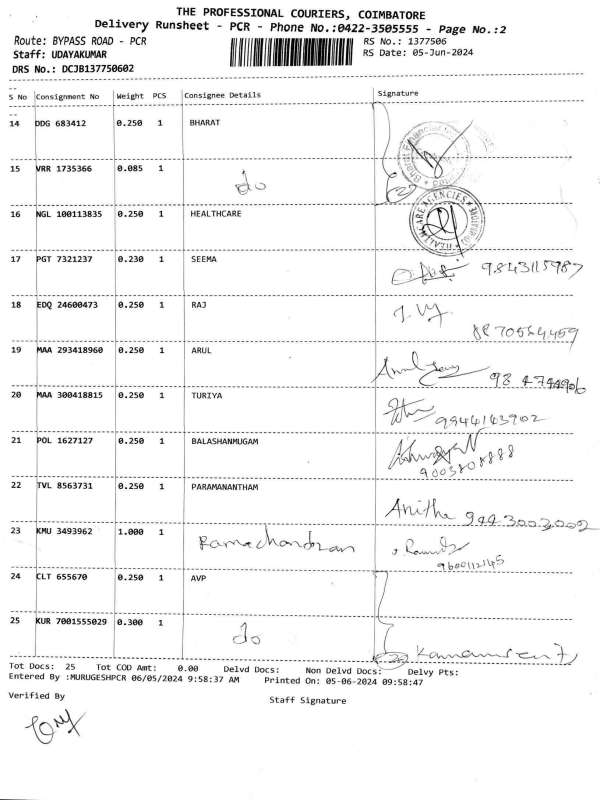 THE PROFESSIONAL COURIERS, COIMBATORE
Delivery Runsheet - PCR - Phone No.:0422-3505555 - Page No.:2
Route: BYPASS ROAD - PCR RS No.: 1377506
Staff: UDAYAKUMAR RS Date: 05-Jun-2024
DRS No.: DCJB137750602
S No Consignment No Weight PCS Consignee Details Signature
14 DDG 683412 0.250 1 BHARAT
15 VRR 1735366 0.085 1 do
16 NGL 100113835 0.250 1 HEALTHCARE
HEALTHCARE AGENCIES
17 PGT 7321237 0.230 1 SEEMA 9843115987
18 EDQ 24600473 0.250 1 RAJ
19 MAA 293418960 0.250 1 ARUL
20 MAA 300418815 0.250 1 TURIYA 9944143902
21 POL 1627127 0.250 1 BALASHANMUGAM
9003808888
22 TVL 8563731 0.250 1 PARAMANANTHAM Anitha 944 300 3002
23 KMU 3493962 1.000 1 Ramachandran
9600112145
24 CLT 655670 0.250 1 AVP
25 KUR 7001555029 0.300 1 do
Tot Docs: 25 Tot COD Amt: 0.00 Delvd Docs: Non Delvd Docs: Delvy Pts:
Entered By :MURUGESHPCR 06/05/2024 9:58:37 AM Printed On: 05-06-2024 09:58:47
Verified By Staff Signature